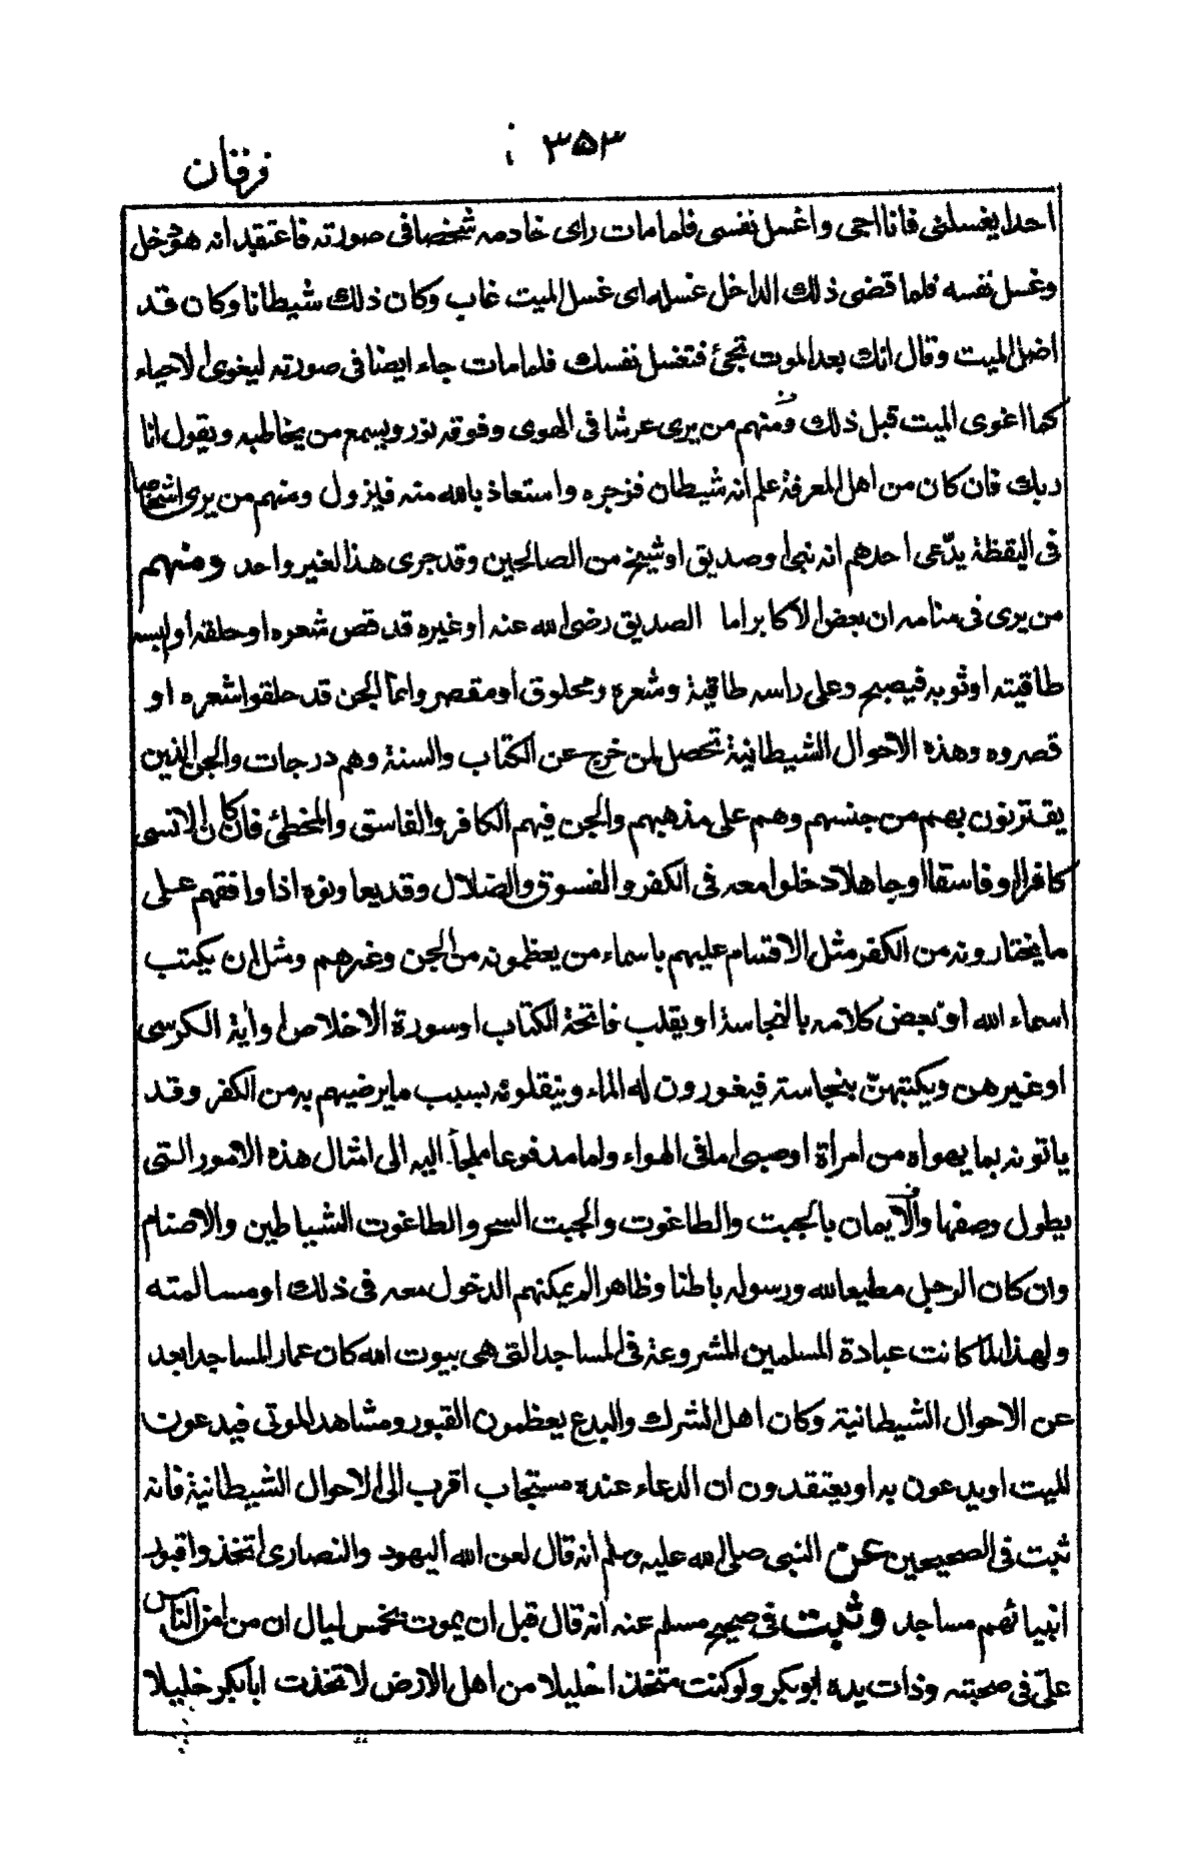 ۳۵۳
فرقان
احدا يغسلنى فانا اجى واغسل نفسى فلما مات راى خادمه شخصا فى صورته فاعتقد انه هو دخل
وغسل نفسه فلما قضى ذلك الداخل غسله اى غسل الميت غاب وكان ذلك شيطانا وكان قد
اضل الميت وقال انك بعد الموت تجئ فتغسل نفسك فلما مات جاء ايضا فى صورته ليغوى الاحياء
كما اغوى الميت قبل ذلك ومنهم من يرى عرشا فى الهوى وفوقه نور ويسمع من يخاطبه ويقول انا
ربك فان كان من اهل المعرفة علم انه شيطان فزجره واستعاذ بالله منه فيزول ومنهم من يرى اشخاصا
فى اليقظة يدّعى احدهم انه نبى او صديق او شيخ من الصالحين وقد جرى هذا لغير واحد ومنهم
من يرى فى منامه ان بعض الاكابر اما الصديق رضى الله عنه او غيره قد قص شعره او حلقه او البسه
طاقيته او ثوبه فيصبح وعلى راسه طاقية وشعره ومحلوق او مقصر وانما الجن قد حلقوا شعره او
قصروه وهذه الاحوال الشيطانية تحصل لمن خرج عن الكتاب والسنة وهم درجات والجن الذين
يقترنون بهم من جنسهم وهم على مذهبهم والجن فيهم الكافر والفاسق والمخطئ فان كان الانسى
كافرا او فاسقا او جاهلا دخلوا معه فى الكفر والفسوق والضلال وقد يعاونوه اذا وافقهم على
ما يختارونه من الكفر مثل الاقسام عليهم باسماء من يعظمونه من الجن وغيرهم ومثل ان يكتب
اسماء الله او بعض كلامه بالنجاسة او يقلب فاتحة الكتاب او سورة الاخلاص او أية الكرسى
او غيرهن ويكتبهنّ بنجاسته فيغورون له الماء وينقلونه بسبب ما يرضيهم به من الكفر وقد
ياتونه بما يهواه من امرأة او صبى اما فى الهواء واما مدفوعا ملجأ اليه الى امثال هذه الامور التى
يطول وصفها والايمان بالجبت والطاغوت والجبت السحر والطاغوت الشياطين والاصنام
وان كان الرجل مطيعا لله ورسوله باطنا وظاهرا لم يمكنهم الدخول معه فى ذلك او مسالمته
ولهذا لما كانت عبادة المسلمين المشروعة فى المساجد التى هى بيوت الله كان عمار المساجد ابعد
عن الاحوال الشيطانية وكان اهل الشرك والبدع يعظمون القبور ومشاهد الموتى فيدعون
الميت او يدعون به او يعتقدون ان الدعاء عنده مستجاب اقرب الى الاحوال الشيطانية فانه
ثبت فى الصحيحين عن النبى صلى الله عليه وسلم انه قال لعن الله اليهود والنصارى اتخذوا قبور
انبيائهم مساجد وثبت فى صحيح مسلم عنه انه قال قبل ان يموت بخمس ليال ان من امن الناس
علىّ فى صحبته وذات يده ابو بكر ولو كنت متخذا خليلا من اهل الارض لا تخذت ابا بكر خليلا